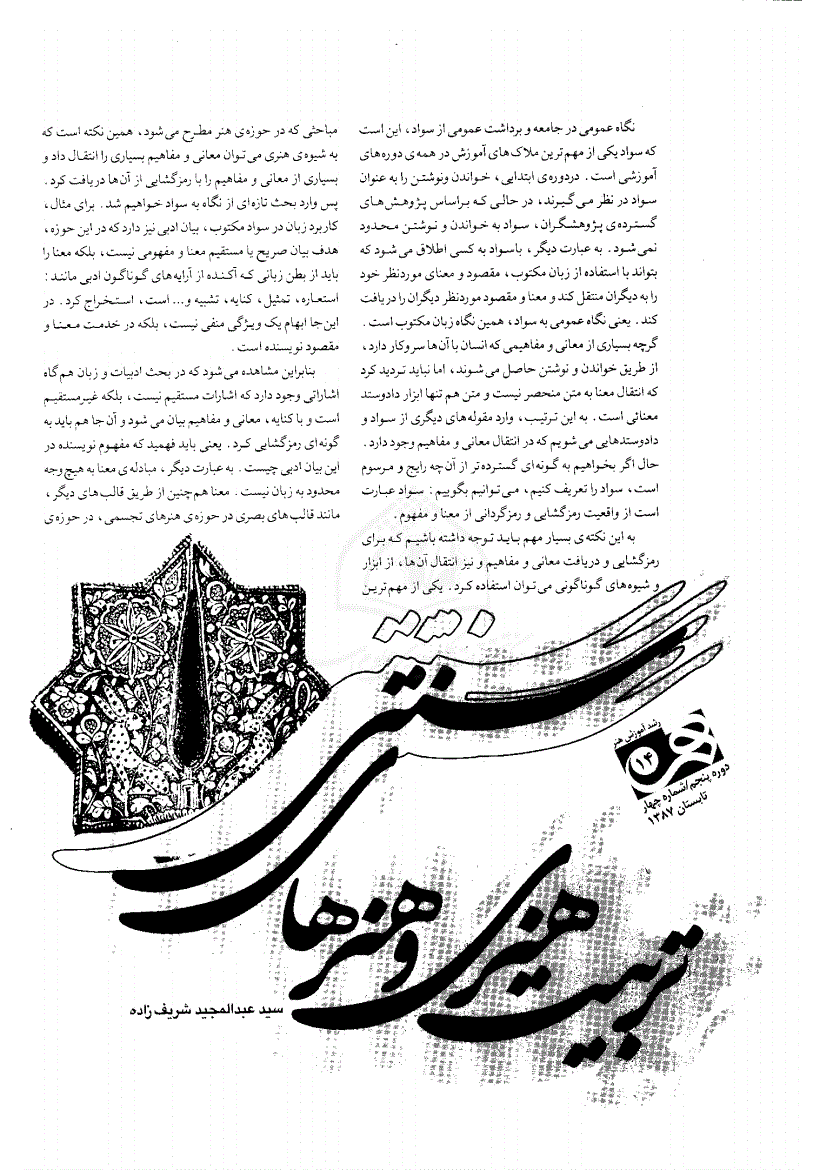 نگاه عمومی در جامعه و برداشت عمومی از سواد، این است
که سواد یکی از مهم ترین ملاک های آموزش در همه ی دوره های
آموزشی است. دردوره ی ابتدایی، خواندن ونوشتن را به عنوان
سواد در نظر می گیرند، در حالی که براساس پژوهش های
گسترده ی پژوهشگران، سواد به خواندن و نوشتن محدود
نمی شود. به عبارت دیگر، باسواد به کسی اطلاق می شود که
بتواند با استفاده از زبان مکتوب، مقصود و معنای موردنظر خود
را به دیگران منتقل کند و معنا و مقصود موردنظر دیگران را دریافت
کند. یعنی نگاه عمومی به سواد، همین نگاه زبان مکتوب است.
گرچه بسیاری از معانی و مفاهیمی که انسان با آن ها سروکار دارد،
از طریق خواندن و نوشتن حاصل می شوند، اما نباید تردید کرد
که انتقال معنا به متن منحصر نیست و متن هم تنها ابزار دادوستد
معنائی است. به این ترتیب، وارد مقوله های دیگری از سواد و
دادوستدهایی می شویم که در انتقال معانی و مفاهیم وجود دارد.
حال اگر بخواهیم به گونه ای گسترده تر از آن چه رایج و مرسوم
است، سواد را تعریف کنیم، می توانیم بگوییم: سواد عبارت
است از واقعیت رمزگشایی و رمزگردانی از معنا و مفهوم.
به این نکته ی بسیار مهم باید توجه داشته باشیم که برای
رمزگشایی و دریافت معانی و مفاهیم و نیز انتقال آن ها، از ابزار
و شیوه های گوناگونی می توان استفاده کرد. یکی از مهم ترین
مباحثی که در حوزه ی هنر مطرح می شود، همین نکته است که
به شیوه ی هنری می توان معانی و مفاهیم بسیاری را انتقال داد و
بسیاری از معانی و مفاهیم را با رمزگشایی از آن ها دریافت کرد.
پس وارد بحث تازه ای از نگاه به سواد خواهیم شد. برای مثال،
کاربرد زبان در سواد مکتوب، بیان ادبی نیز دارد که در این حوزه،
هدف بیان صریح یا مستقیم معنا و مفهومی نیست، بلکه معنا را
باید از بطن زبانی که آکنده از آرایه های گوناگون ادبی مانند:
استعاره، تمثیل، کنایه، تشبیه و... است، استخراج کرد. در
این جا ابهام یک ویژگی منفی نیست، بلکه در خدمت معنا و
مقصود نویسنده است.
بنابراین مشاهده می شود که در بحث ادبیات و زبان هم گاه
اشاراتی وجود دارد که اشارات مستقیم نیست، بلکه غیرمستقیم
است و با کنایه، معانی و مفاهیم بیان می شود و آن جا هم باید به
گونه ای رمزگشایی کرد. یعنی باید فهمید که مفهوم نویسنده در
این بیان ادبی چیست. به عبارت دیگر، مبادله ی معنا به هیچ وجه
محدود به زبان نیست. معنا هم چنین از طریق قالب های دیگر،
مانند قالب های بصری در حوزه ی هنرهای تجسمی، در حوزه ی
تربیت هنری و هنرهای سنتی
سید عبدالمجید شریف زاده
رشد آموزش هنر
هنر
۱۴
دوره پنجم/شماره چهار
تابستان ۱۳۸۷